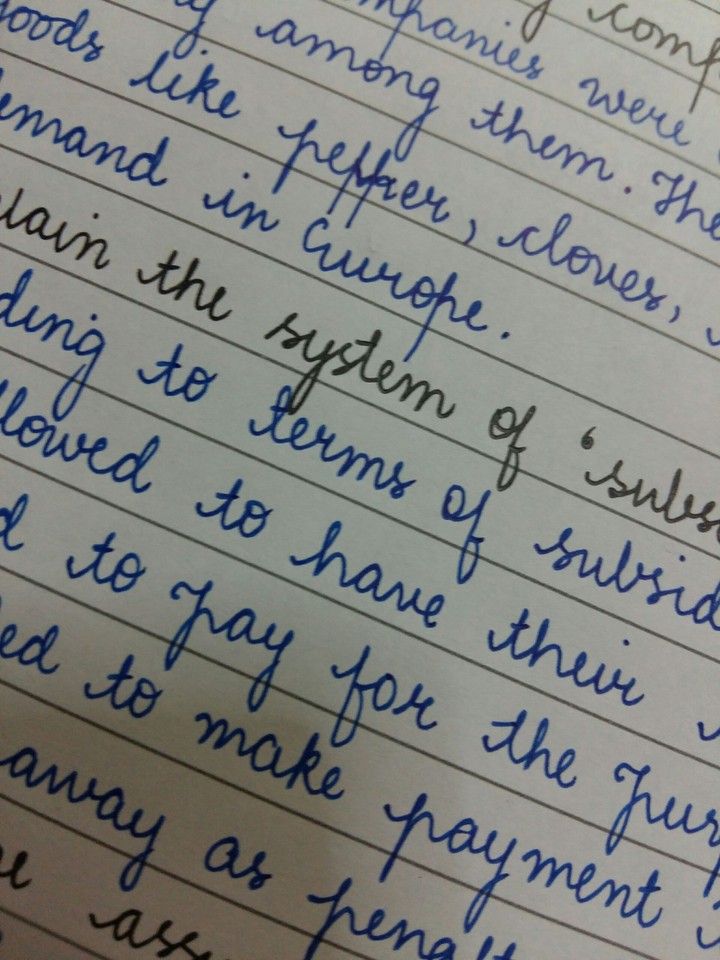 comp
companies were
among them. The
goods like pepper, cloves,
demand in Europe.
plain the system of 'subs
ding to terms of subsid
lowed to have their
d to pay for the pur
ed to make payment
away as penalt
ass